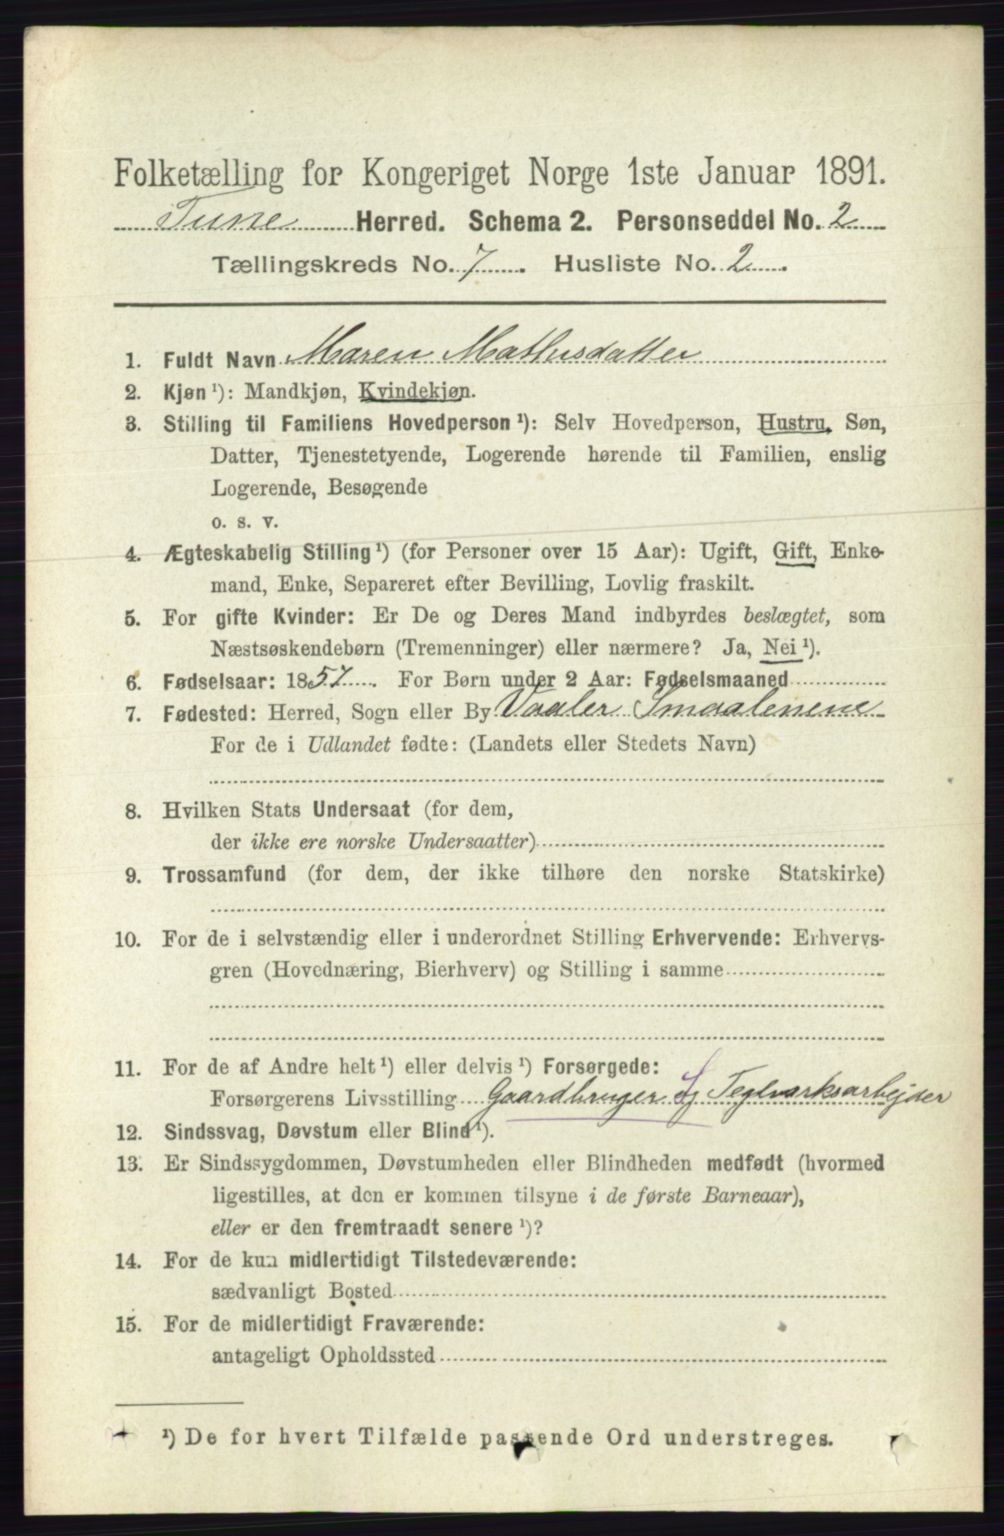 Folketælling for Kongeriget Norge 1ste Januar 1891.
Tune Herred. Schema 2. Personseddel No. 2
Tællingskreds No. 7. Husliste No. 2.
1. Fuldt Navn Maren Mathisdatter
2. Kjøn ¹): Mandkjøn, Kvindekjøn.
3. Stilling til Familiens Hovedperson ¹): Selv Hovedperson, Hustru, Søn,
Datter, Tjenestetyende, Logerende hørende til Familien, enslig
Logerende, Besøgende
o. s. v.
4. Ægteskabelig Stilling ¹) (for Personer over 15 Aar): Ugift, Gift, Enke-
mand, Enke, Separeret efter Bevilling, Lovlig fraskilt.
5. For gifte Kvinder: Er De og Deres Mand indbyrdes beslægtet, som
Næstsøskendebørn (Tremenninger) eller nærmere? Ja, Nei ¹).
6. Fødselsaar: 1857. For Børn under 2 Aar: Fødselsmaaned
7. Fødested: Herred, Sogn eller By Vaaler Smaalenene
For de i Udlandet fødte: (Landets eller Stedets Navn)
8. Hvilken Stats Undersaat (for dem,
der ikke ere norske Undersaatter)
9. Trossamfund (for dem, der ikke tilhøre den norske Statskirke)
10. For de i selvstændig eller i underordnet Stilling Erhvervende: Erhvervs-
gren (Hovednæring, Bierhverv) og Stilling i samme
11. For de af Andre helt ¹) eller delvis ¹) Forsørgede:
Forsørgerens Livsstilling Gaardbruger og Teglværksarbejder
12. Sindssvag, Døvstum eller Blind ¹).
13. Er Sindssygdommen, Døvstumheden eller Blindheden medfødt (hvormed
ligestilles, at den er kommen tilsyne i de første Barneaar),
eller er den fremtraadt senere ¹)?
14. For de kun midlertidigt Tilstedeværende:
sædvanligt Bosted
15. For de midlertidigt Fraværende:
antageligt Opholdssted
¹) De for hvert Tilfælde passende Ord understreges.